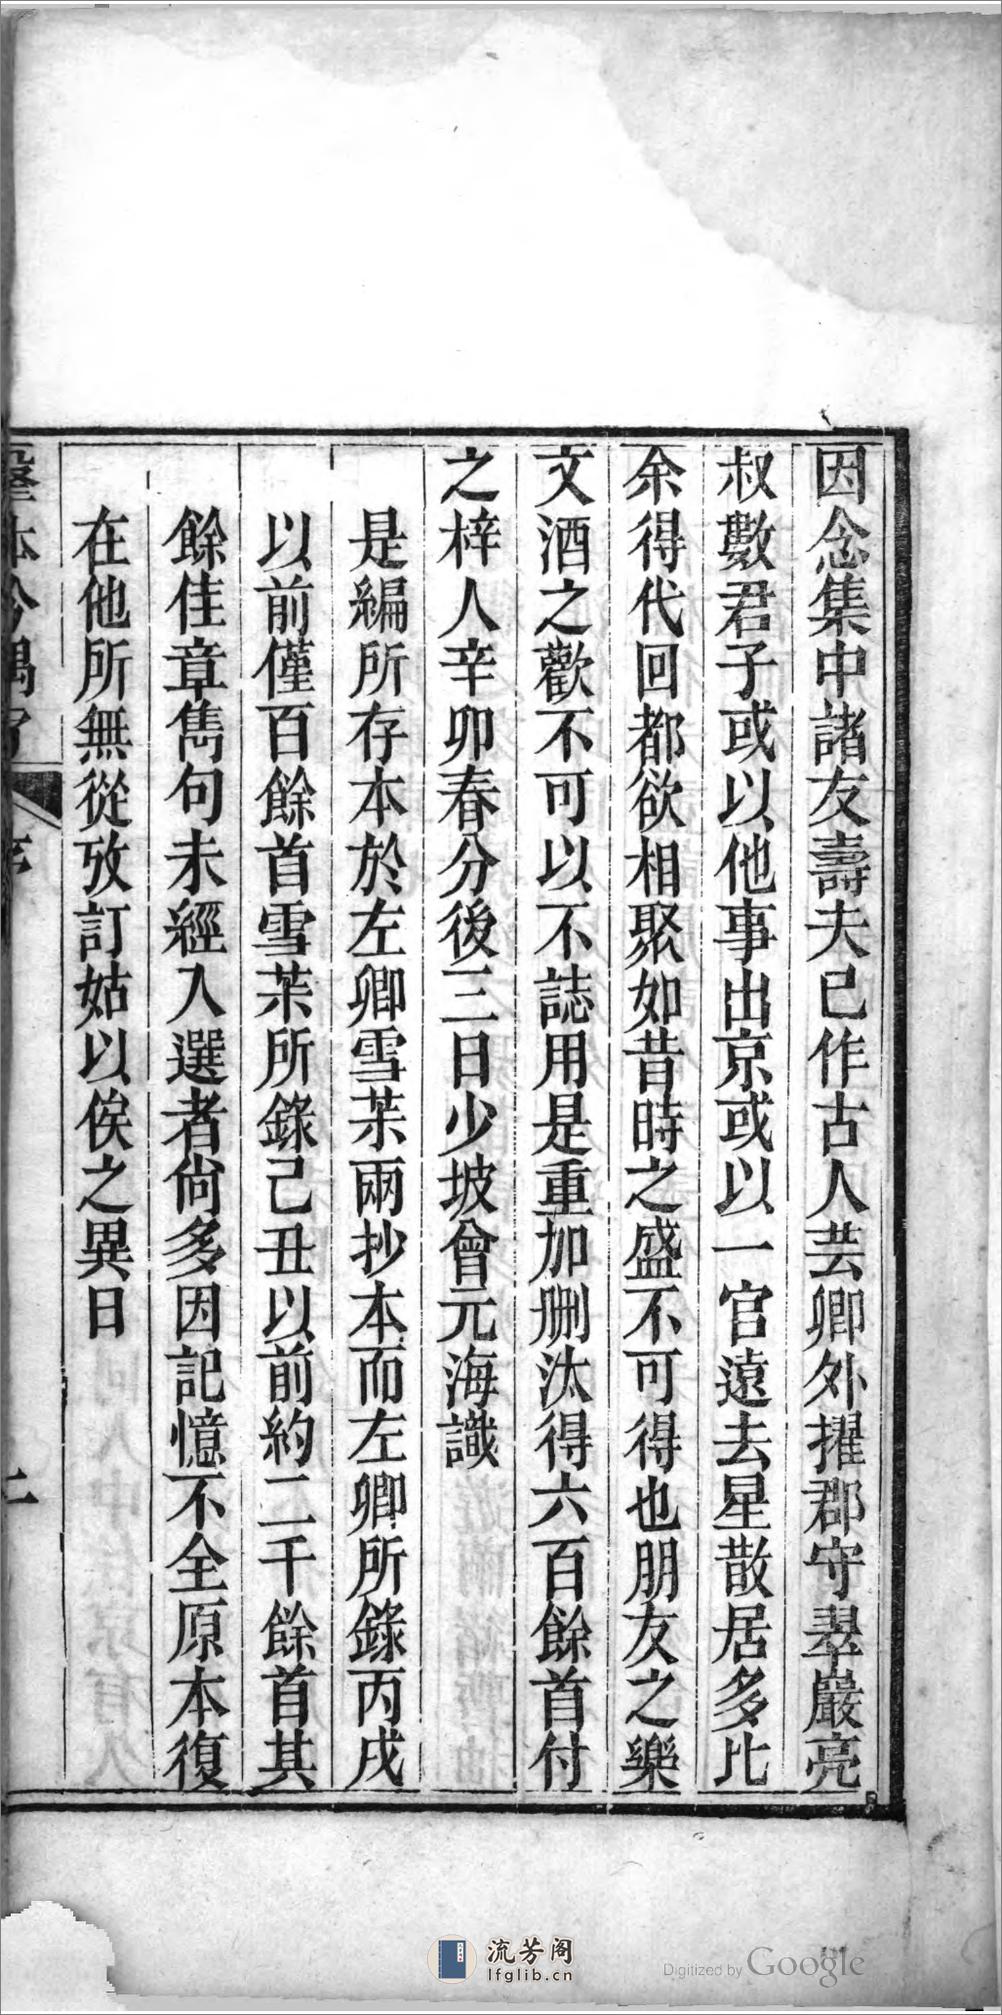 因念集中諸友壽夫已作古人芸卿外擢郡守翠巖亮
叔數君子或以他事出京或以一官遠去星散居多比
余得代回都欲相聚如昔時之盛不可得也朋友之樂
文酒之歡不可以不誌用是重加刪汰得六百餘首付
之梓人辛卯春分後三日少坡曾元海識
是編所存本於左卿雪茮兩抄本而左卿所錄丙戌
以前僅百餘首雪茮所錄己丑以前約二千餘首其
餘佳章雋句未經入選者尙多因記憶不全原本復
在他所無從攷訂姑以俟之異日
序
二
流芳阁
lfglib.cn
Digitized by Google